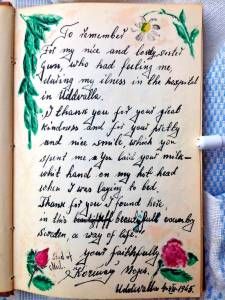 To remember
For my nice and lovly sister
Gun, who had feeling me,
during my ilness in the hospital
in Uddevalla.
I thank you for your great
kindness and for your pretty
and nice smile, which you
spent me, as you laid your milk-
what hand on my hot head
when I was laying to bed.
Thank for you I found here
in this beautyfull country
Sweden, a way of life!"
your faithfully
Uddevalla 1945.